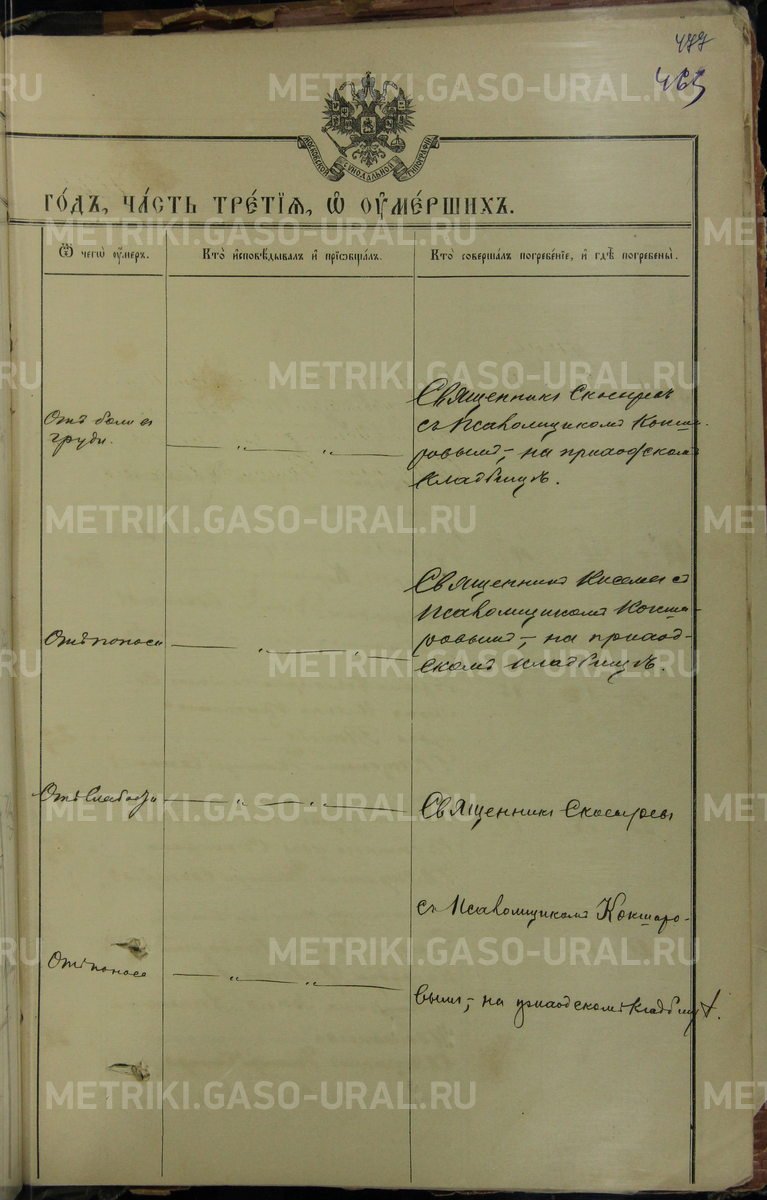 477
465
МОСКОВСКОЙ СѴНОДАЛЬНОЙ ТИПОГРАФІИ
ГО́ДЪ, ЧА́СТЬ ТРЕ́ТІѦ, Ѡ҆ ОУ҆МЕ́РШИХЪ.
Ѿ чегѡ̀ оу҆́меръ.
Кто̀ и҆сповѣ́дывалъ и҆ прїѡбща́лъ.
Кто̀ соверша́лъ погребе́нїе, и҆ гдѣ̀ погребены̀.
Отъ боли въ
груди.
— „ — „ —
Священникъ Скосыревъ
съ Псаломщикомъ Кокша-
ровымъ, на приходскомъ
кладбищѣ.
Отъ поноса
— „ — „ —
Священникъ Киселевъ съ
Псаломщикомъ Кокша-
ровымъ, на приход-
скомъ кладбищѣ.
Отъ слабости
— „ — „ —
Священникъ Скосыревъ
съ Псаломщикомъ Кокшаро-
Отъ поноса
— „ — „ —
вымъ, на приходскомъ кладбищѣ.
METRIKI.GASO-URAL.RU